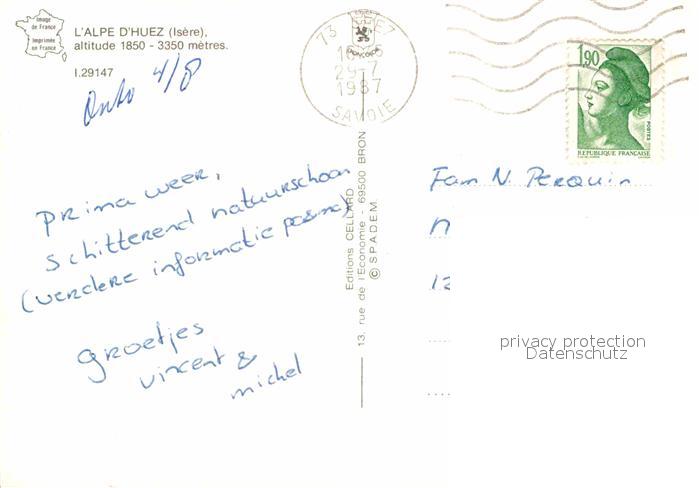 Image
de France
Imprimée
en France
L'ALPE D'HUEZ (Isère),
altitude 1850 - 3350 mètres.
I.29147
4/8
Prima weer,
schitterend natuurschoon
(verdere informatie
groetjes
vincent &
michel
Editions CELLARD
13, rue de l'Economie - 69500 BRON
© SPADEM
73
29-7
1987
SAVOIE
1,90
POSTES
REPUBLIQUE FRANÇAISE
Fam N. Perquin
privacy protection
Datenschutz